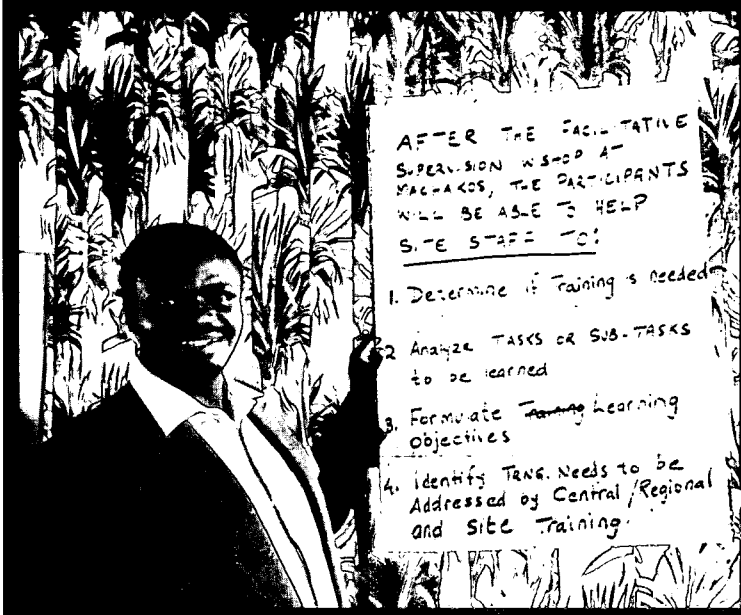 AFTER THE FACILITATIVE
SUPERVISION WSHOP AT
MACHAKOS, THE PARTICIPANTS
WILL BE ABLE TO HELP
SITE STAFF TO:
1. Determine if Training is needed
2 Analyze TASKS OR SUB-TASKS
to be learned
3. Formulate Training Learning
Objectives
4. Identify TRNG. Needs to be
Addressed by Central/Regional
and Site Training.